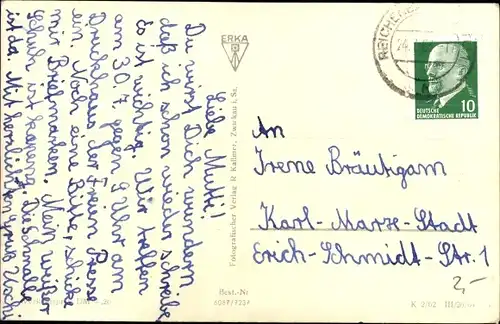 Liebe Mutti!
Du wirst Dich wundern
daß ich schon wieder schreibe
Es ist wichtig. Wir treffen
am 30.7 gegen 9 Uhr am
Druckhaus der Freien Presse
ein. Noch eine Bitte, schicke
mir Briefmarken. Mein weißer
Schuh ist kaputt. Die Schnalle
ist da. Mit herzlichen Gruß Uschi
ERKA
Fotografischer Verlag R Kallmer, Zwickau i. Sa.
Best.-Nr.
24.7.
DEUTSCHE
DEMOKRATISCHE REPUBLIK
10
An
Irene Bräutigam
Karl-Marx-Stadt
Erich-Schmidt-Str. 1
2,-
K 2/62